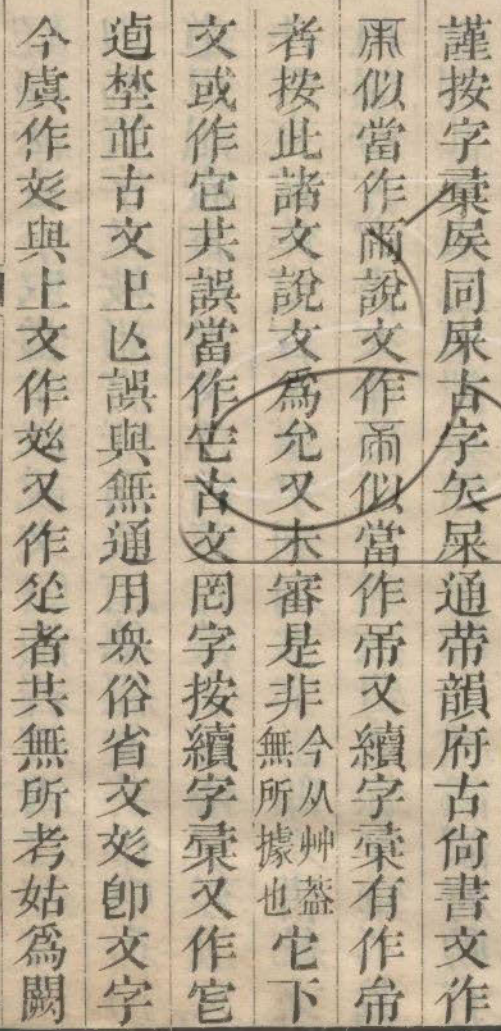 謹按字彙�大同屎古字矢屎通帯韻府古尙書文作
似當作說文作似當作帝又續字彙有作帝
者按此諸文說文爲允又未審是非今从艸葢無所據也它下
文或作它共誤當作古文罔字按續字彙又作
並古文誤與無通用俗省文卽文字
今虞作與上文作又作者共無所考姑爲闕